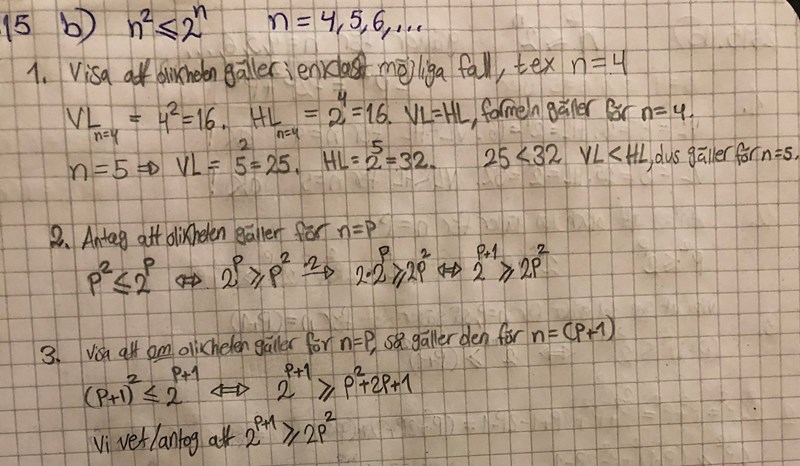 15 b) n² ≤ 2ⁿ n = 4, 5, 6, ...
1. Visa att olikheten gäller i enklast möjliga fall, tex n = 4
VL_{n=4} = 4² = 16. HL_{n=4} = 2⁴ = 16. VL = HL, formeln gäller för n = 4.
n = 5 ⇒ VL = 5² = 25. HL = 2⁵ = 32. 25 < 32 VL < HL, dvs gäller för n = 5.
2. Antag att olikheten gäller för n = p
p² ≤ 2^p ⇔ 2^p ⩾ p² ·2⇒ 2·2^p ⩾ 2p² ⇔ 2^{p+1} ⩾ 2p²
3. Visa att om olikheten gäller för n = p, så gäller den för n = (p+1)
(p+1)² ≤ 2^{p+1} ⇔ 2^{p+1} ⩾ p² + 2p + 1
Vi vet/antog att 2^{p+1} ⩾ 2p²